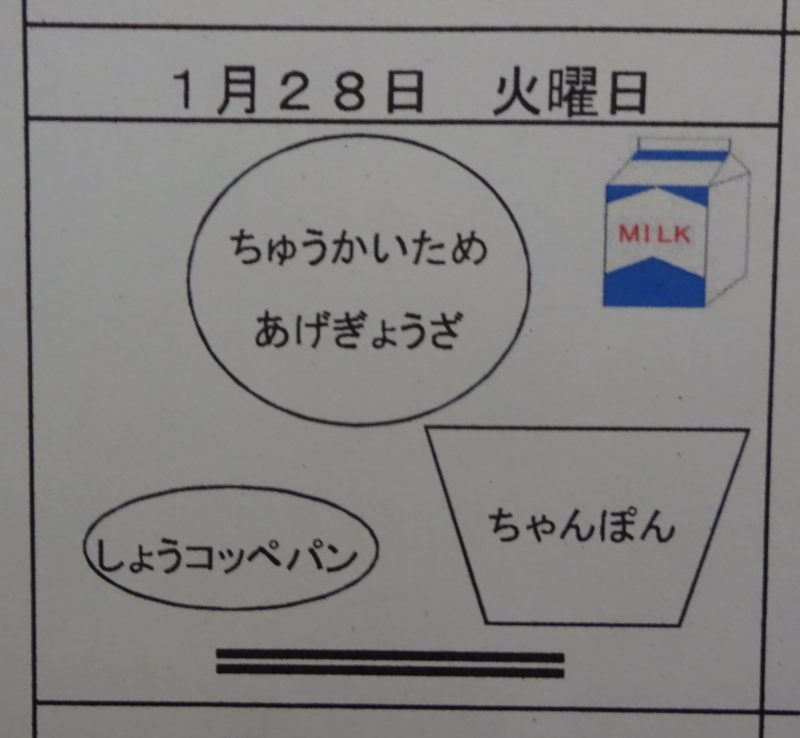 1月28日　火曜日
ちゅうかいため
あげぎょうざ
MILK
ちゃんぽん
しょうコッペパン